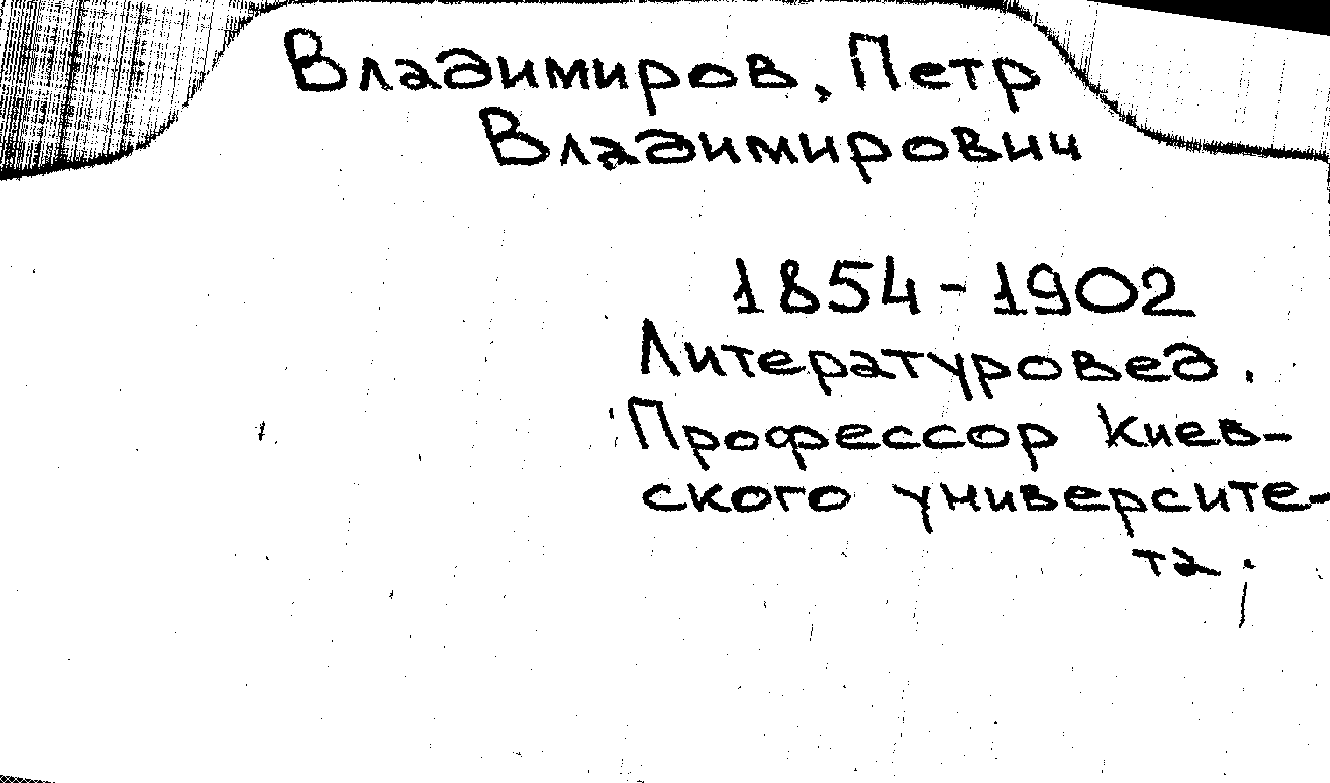 Владимиров, Петр
Владимирович
1854-1902
Литературовед.
Профессор Киев-
ского университе-
та.